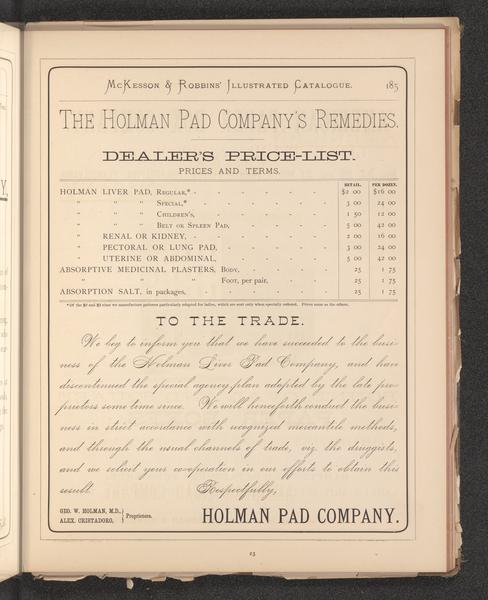 McKesson & Robbins' Illustrated Catalogue. 185
The Holman Pad Company's Remedies.
DEALER'S PRICE-LIST.
PRICES AND TERMS.
RETAIL. PER DOZEN.
HOLMAN LIVER PAD, Regular,* - - - - - - $2 00 $16 00
" " " Special,* - - - - - - 3 00 24 00
" " " Children's, - - - - - 1 50 12 00
" " " Belt or Spleen Pad, - - - - 5 00 42 00
" RENAL OR KIDNEY, - - - - - - 2 00 16 00
" PECTORAL OR LUNG PAD, - - - - - 3 00 24 00
" UTERINE OR ABDOMINAL, - - - - - 5 00 42 00
ABSORPTIVE MEDICINAL PLASTERS, Body, - - - - 25 1 75
" " " Foot, per pair, - - - 25 1 75
ABSORPTION SALT, in packages, - - - - - - 25 1 75
*Of the $2 and $3 sizes we manufacture patterns particularly adapted for ladies, which are sent only when specially ordered. Prices same as the others.
TO THE TRADE.
We beg to inform you that we have succeeded to the busi-
ness of the Holman Liver Pad Company, and have
discontinued the special agency plan adopted by the late pro-
prietors some time since. We will henceforth conduct the busi-
ness in strict accordance with recognized mercantile methods,
and through the usual channels of trade, viz. the druggists,
and we solicit your co-operation in our efforts to obtain this
result. Respectfully,
GEO. W. HOLMAN, M.D.,
ALEX. CRISTADORO, } Proprietors.
HOLMAN PAD COMPANY.
23